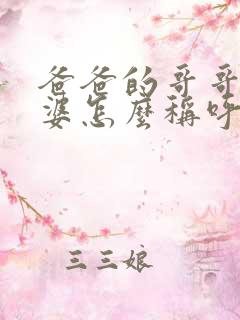 爸爸的哥哥
婆怎麼稱呼
三三娘